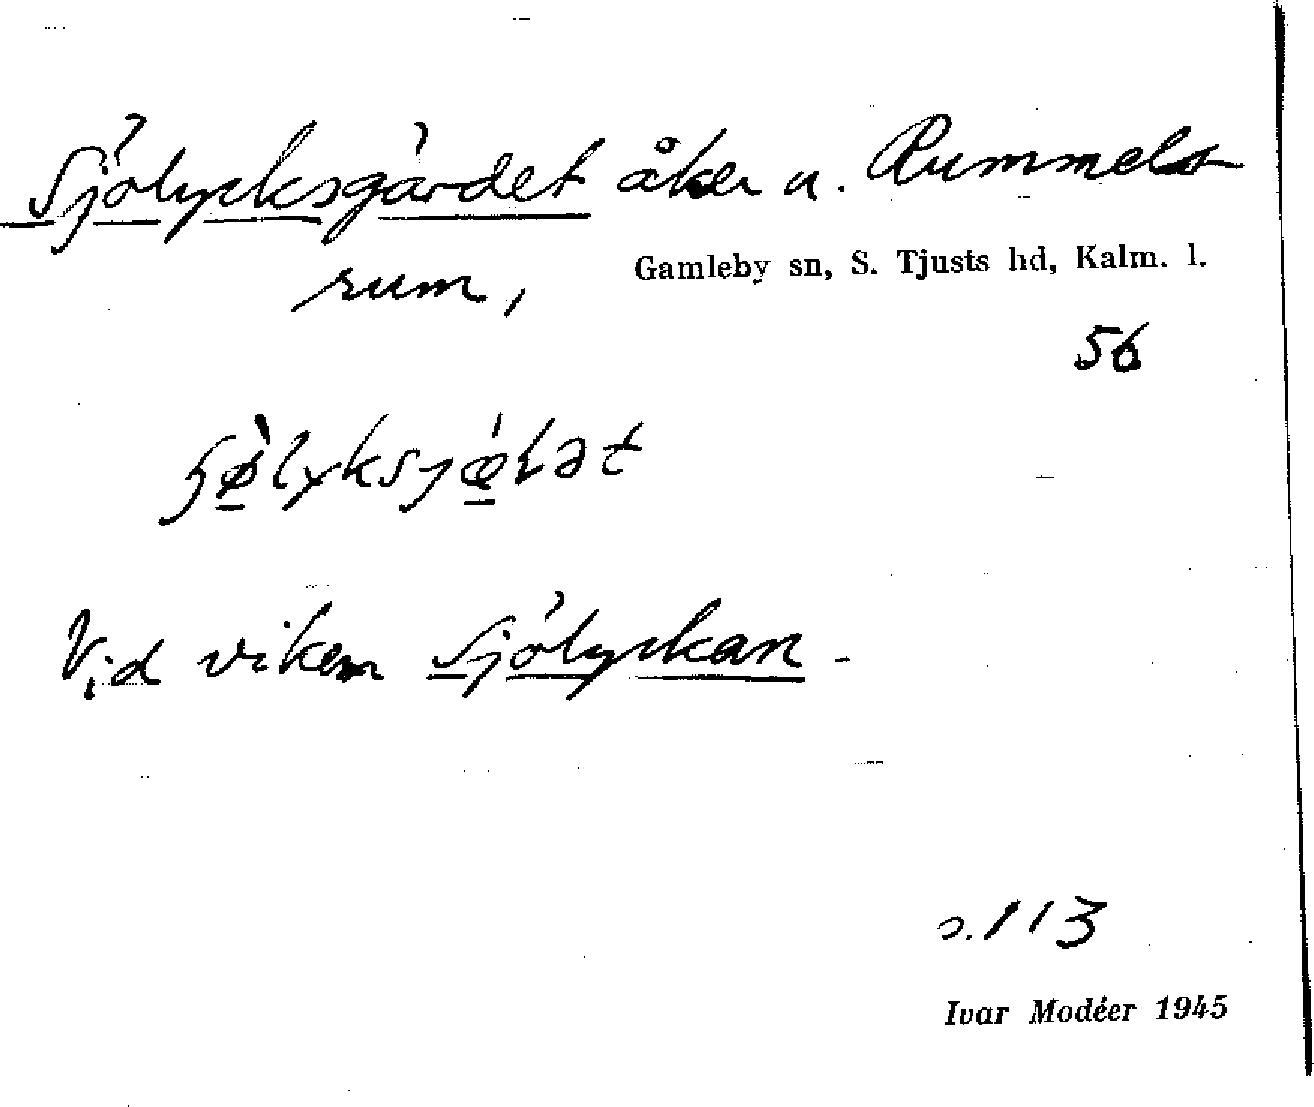 Sjölycksgärdet åker u. Rummels-
rum,
Gamleby sn, S. Tjusts hd, Kalm. l.
56
Vid viken Sjölyckan -
s. 113
Ivar Modéer 1945